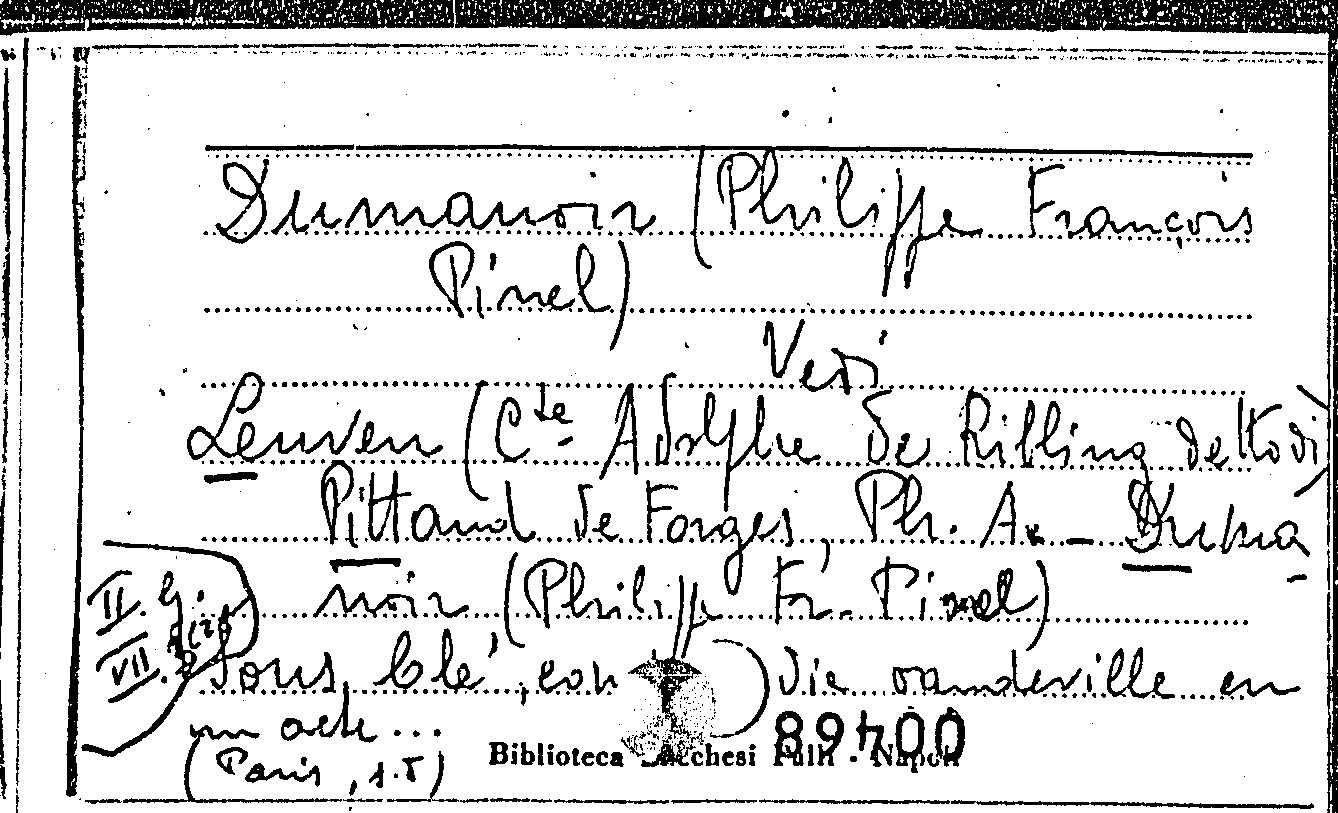 Dumanoir (Philippe François
Pinel)
Vedi
Leuven (Cte Adolphe de Ribbing detto di)
Pittaud de Forges, Ph. A. - Duma
noir (Philipp Fr. Pinel)
II. G.
VII.
Sous clé, com die vaudeville en
un acte...
(Paris, s.t)
89400
Biblioteca Lucchesi Palli - Napoli